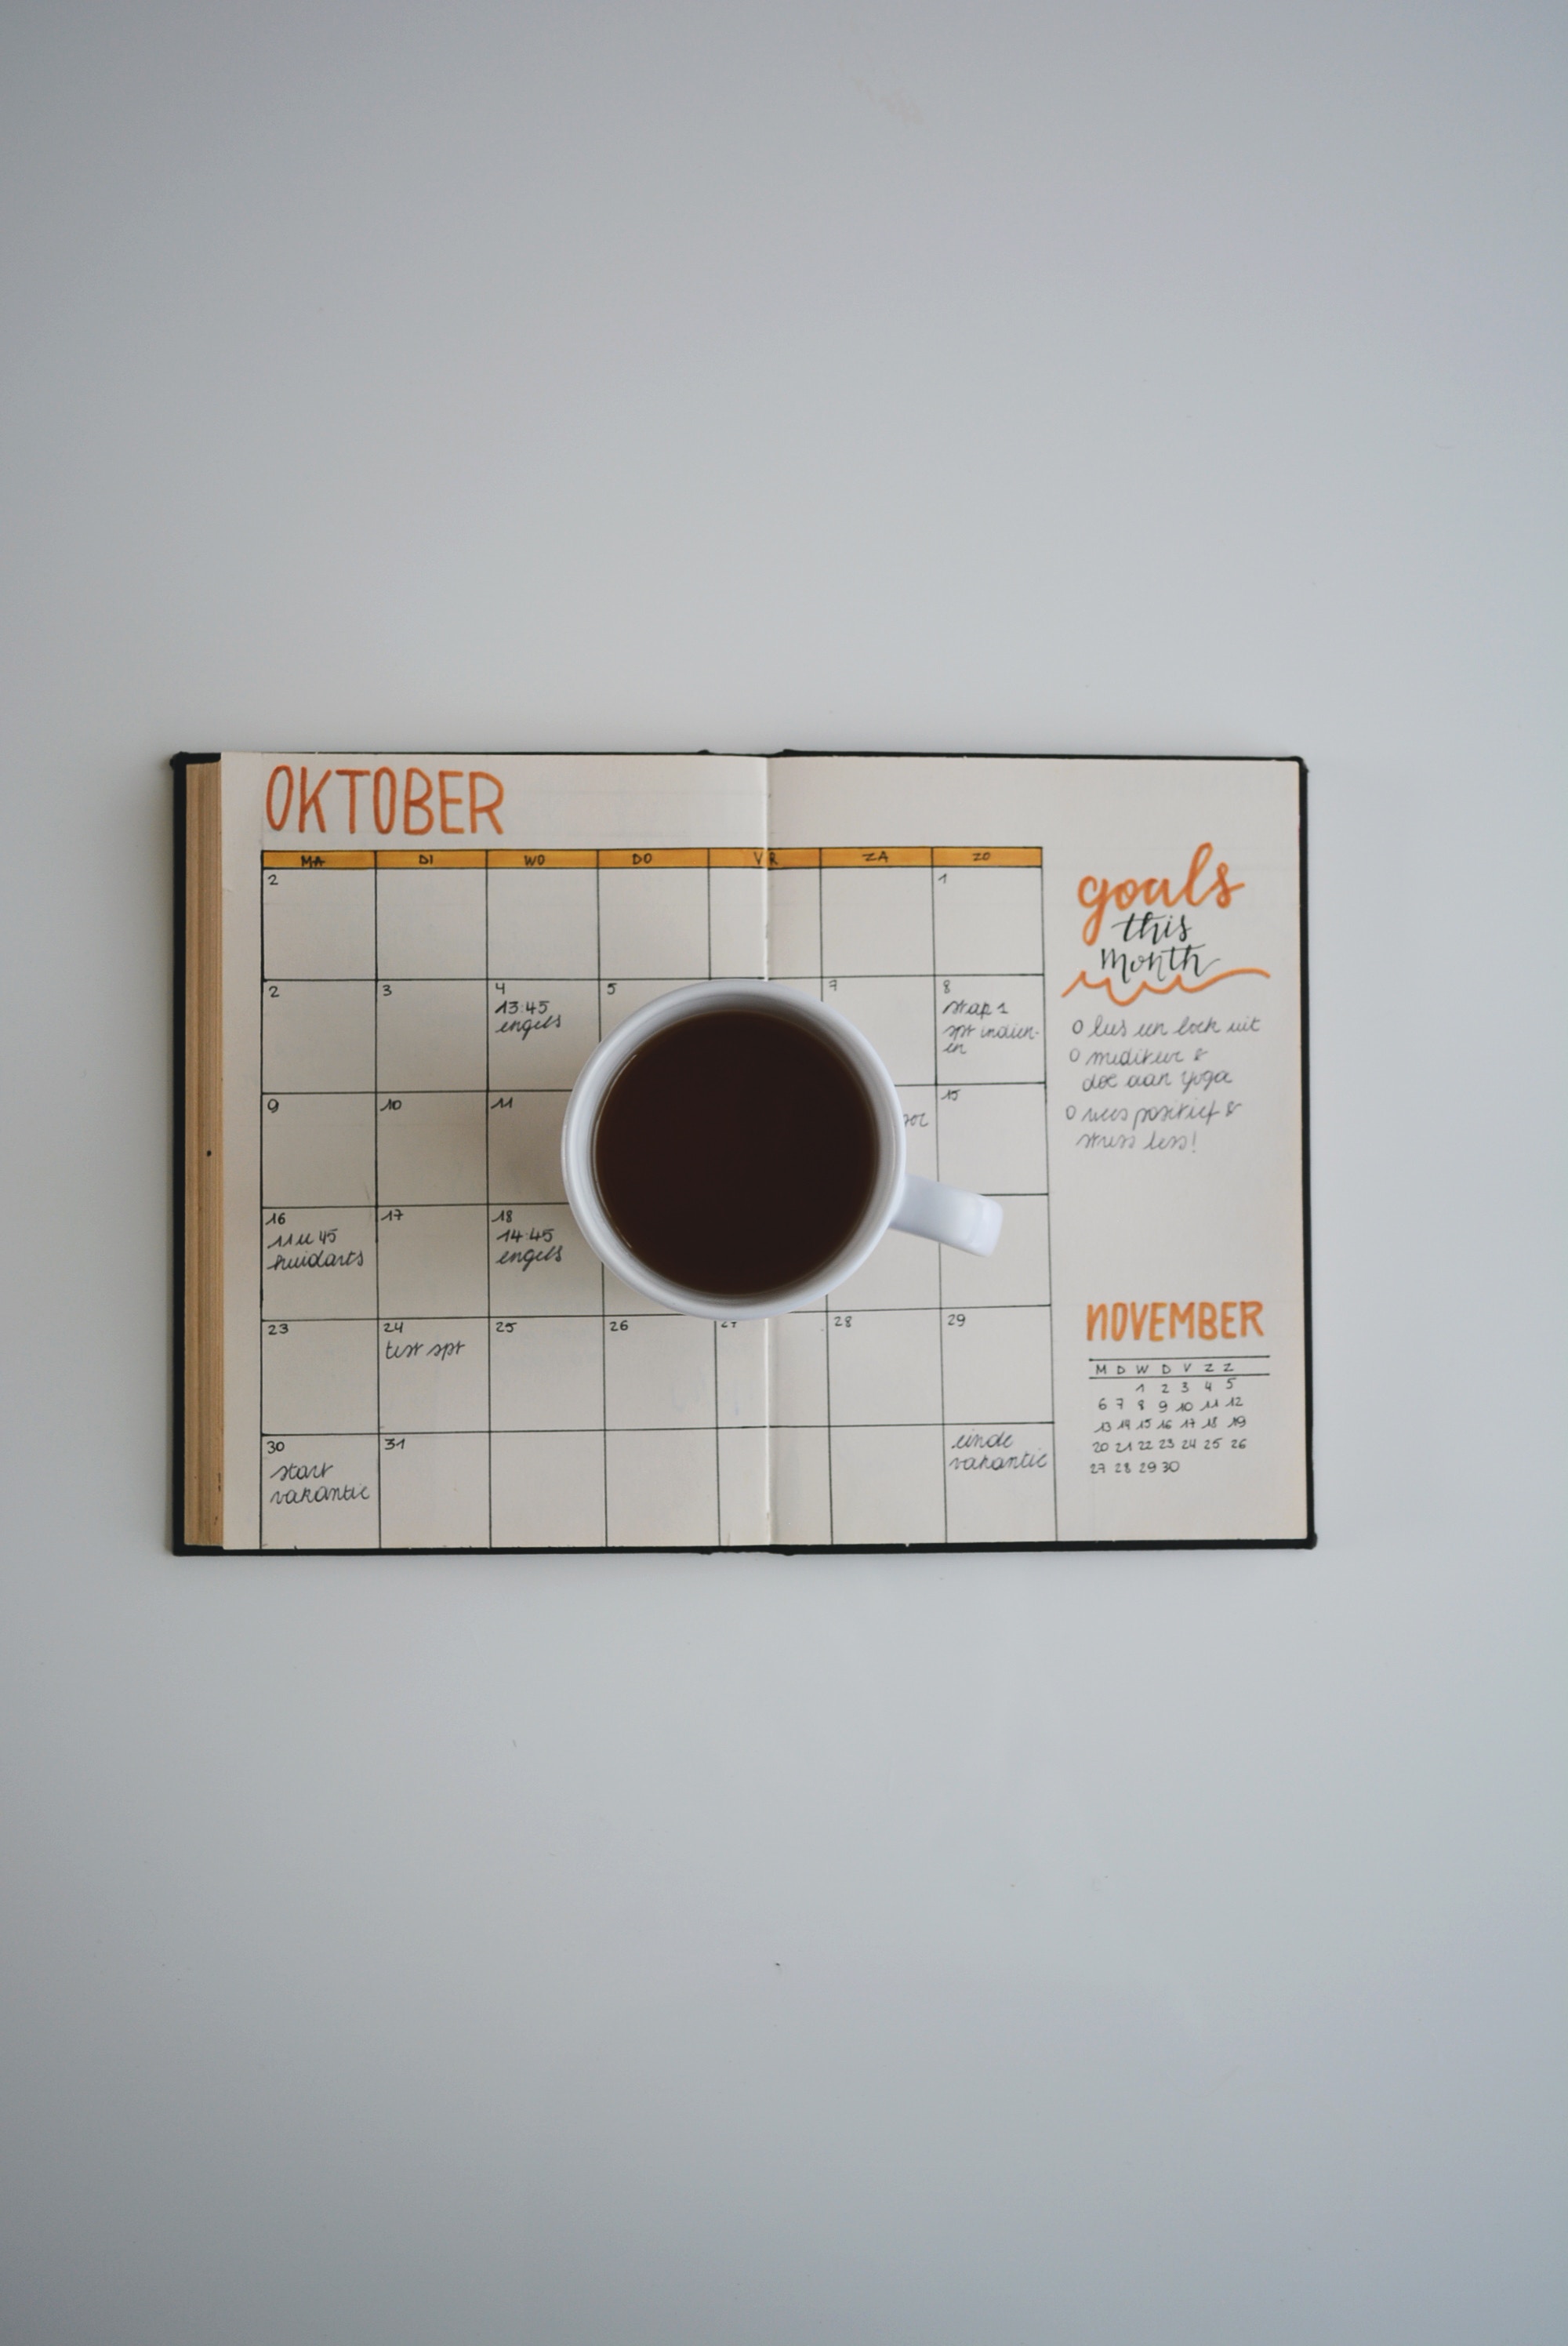 OKTOBER
MA DI WO DO VR ZA ZO
2 1
2 3 4 5 7 8
13:45
engels
stap 1
spr indien-
en
9 10 11 15
16 17 18
11u45
huidarts
14:45
engels
23 24 25 26 27 28 29
test spr
30 31
start
vakantie
einde
vakantie
goals
this
month
O lees een boek uit
O mediteer &
doe aan yoga
O wees positief &
stress less!
NOVEMBER
M D W D V Z Z
1 2 3 4 5
6 7 8 9 10 11 12
13 14 15 16 17 18 19
20 21 22 23 24 25 26
27 28 29 30